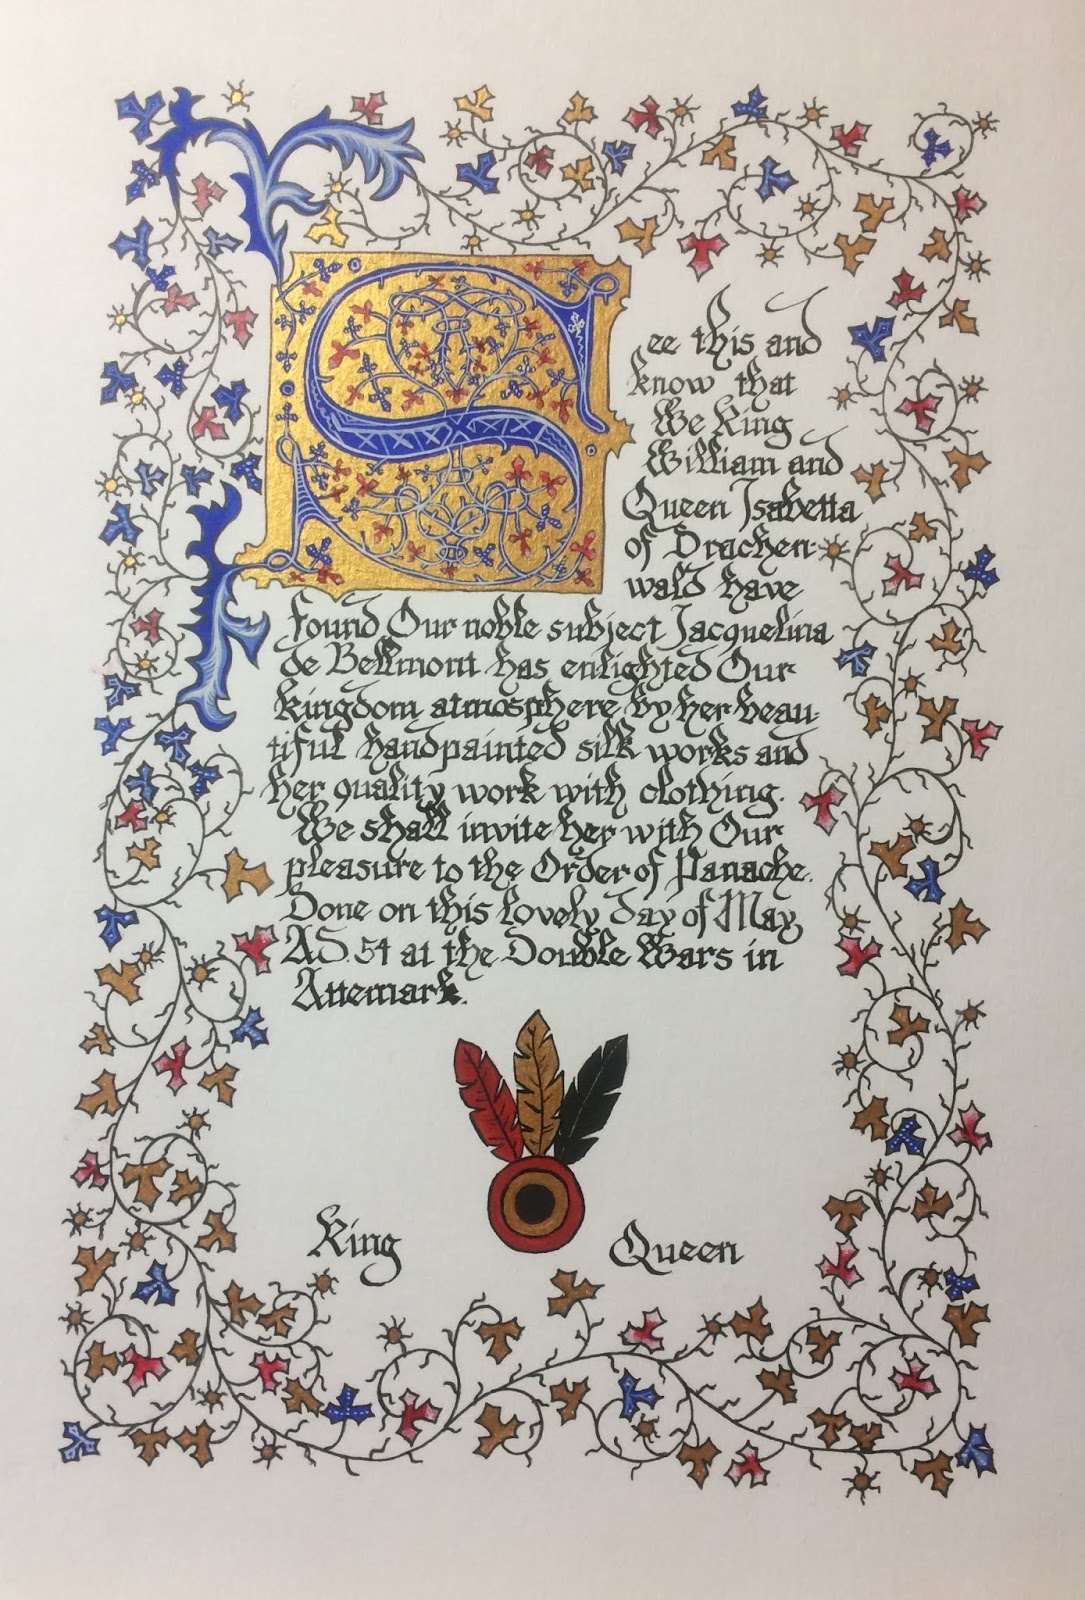 See this and
know that
We King
William and
Queen Isabetta
of Drachen-
wald have
found Our noble subject Jacquelina
de Bellmont has enlighted Our
kingdom atmosphere by her beau-
tiful handpainted silk works and
her quality work with clothing.
We shall invite her with Our
pleasure to the Order of Panache.
Done on this lovely day of May
AS. 54 at the Double Wars in
Attemark.
King Queen